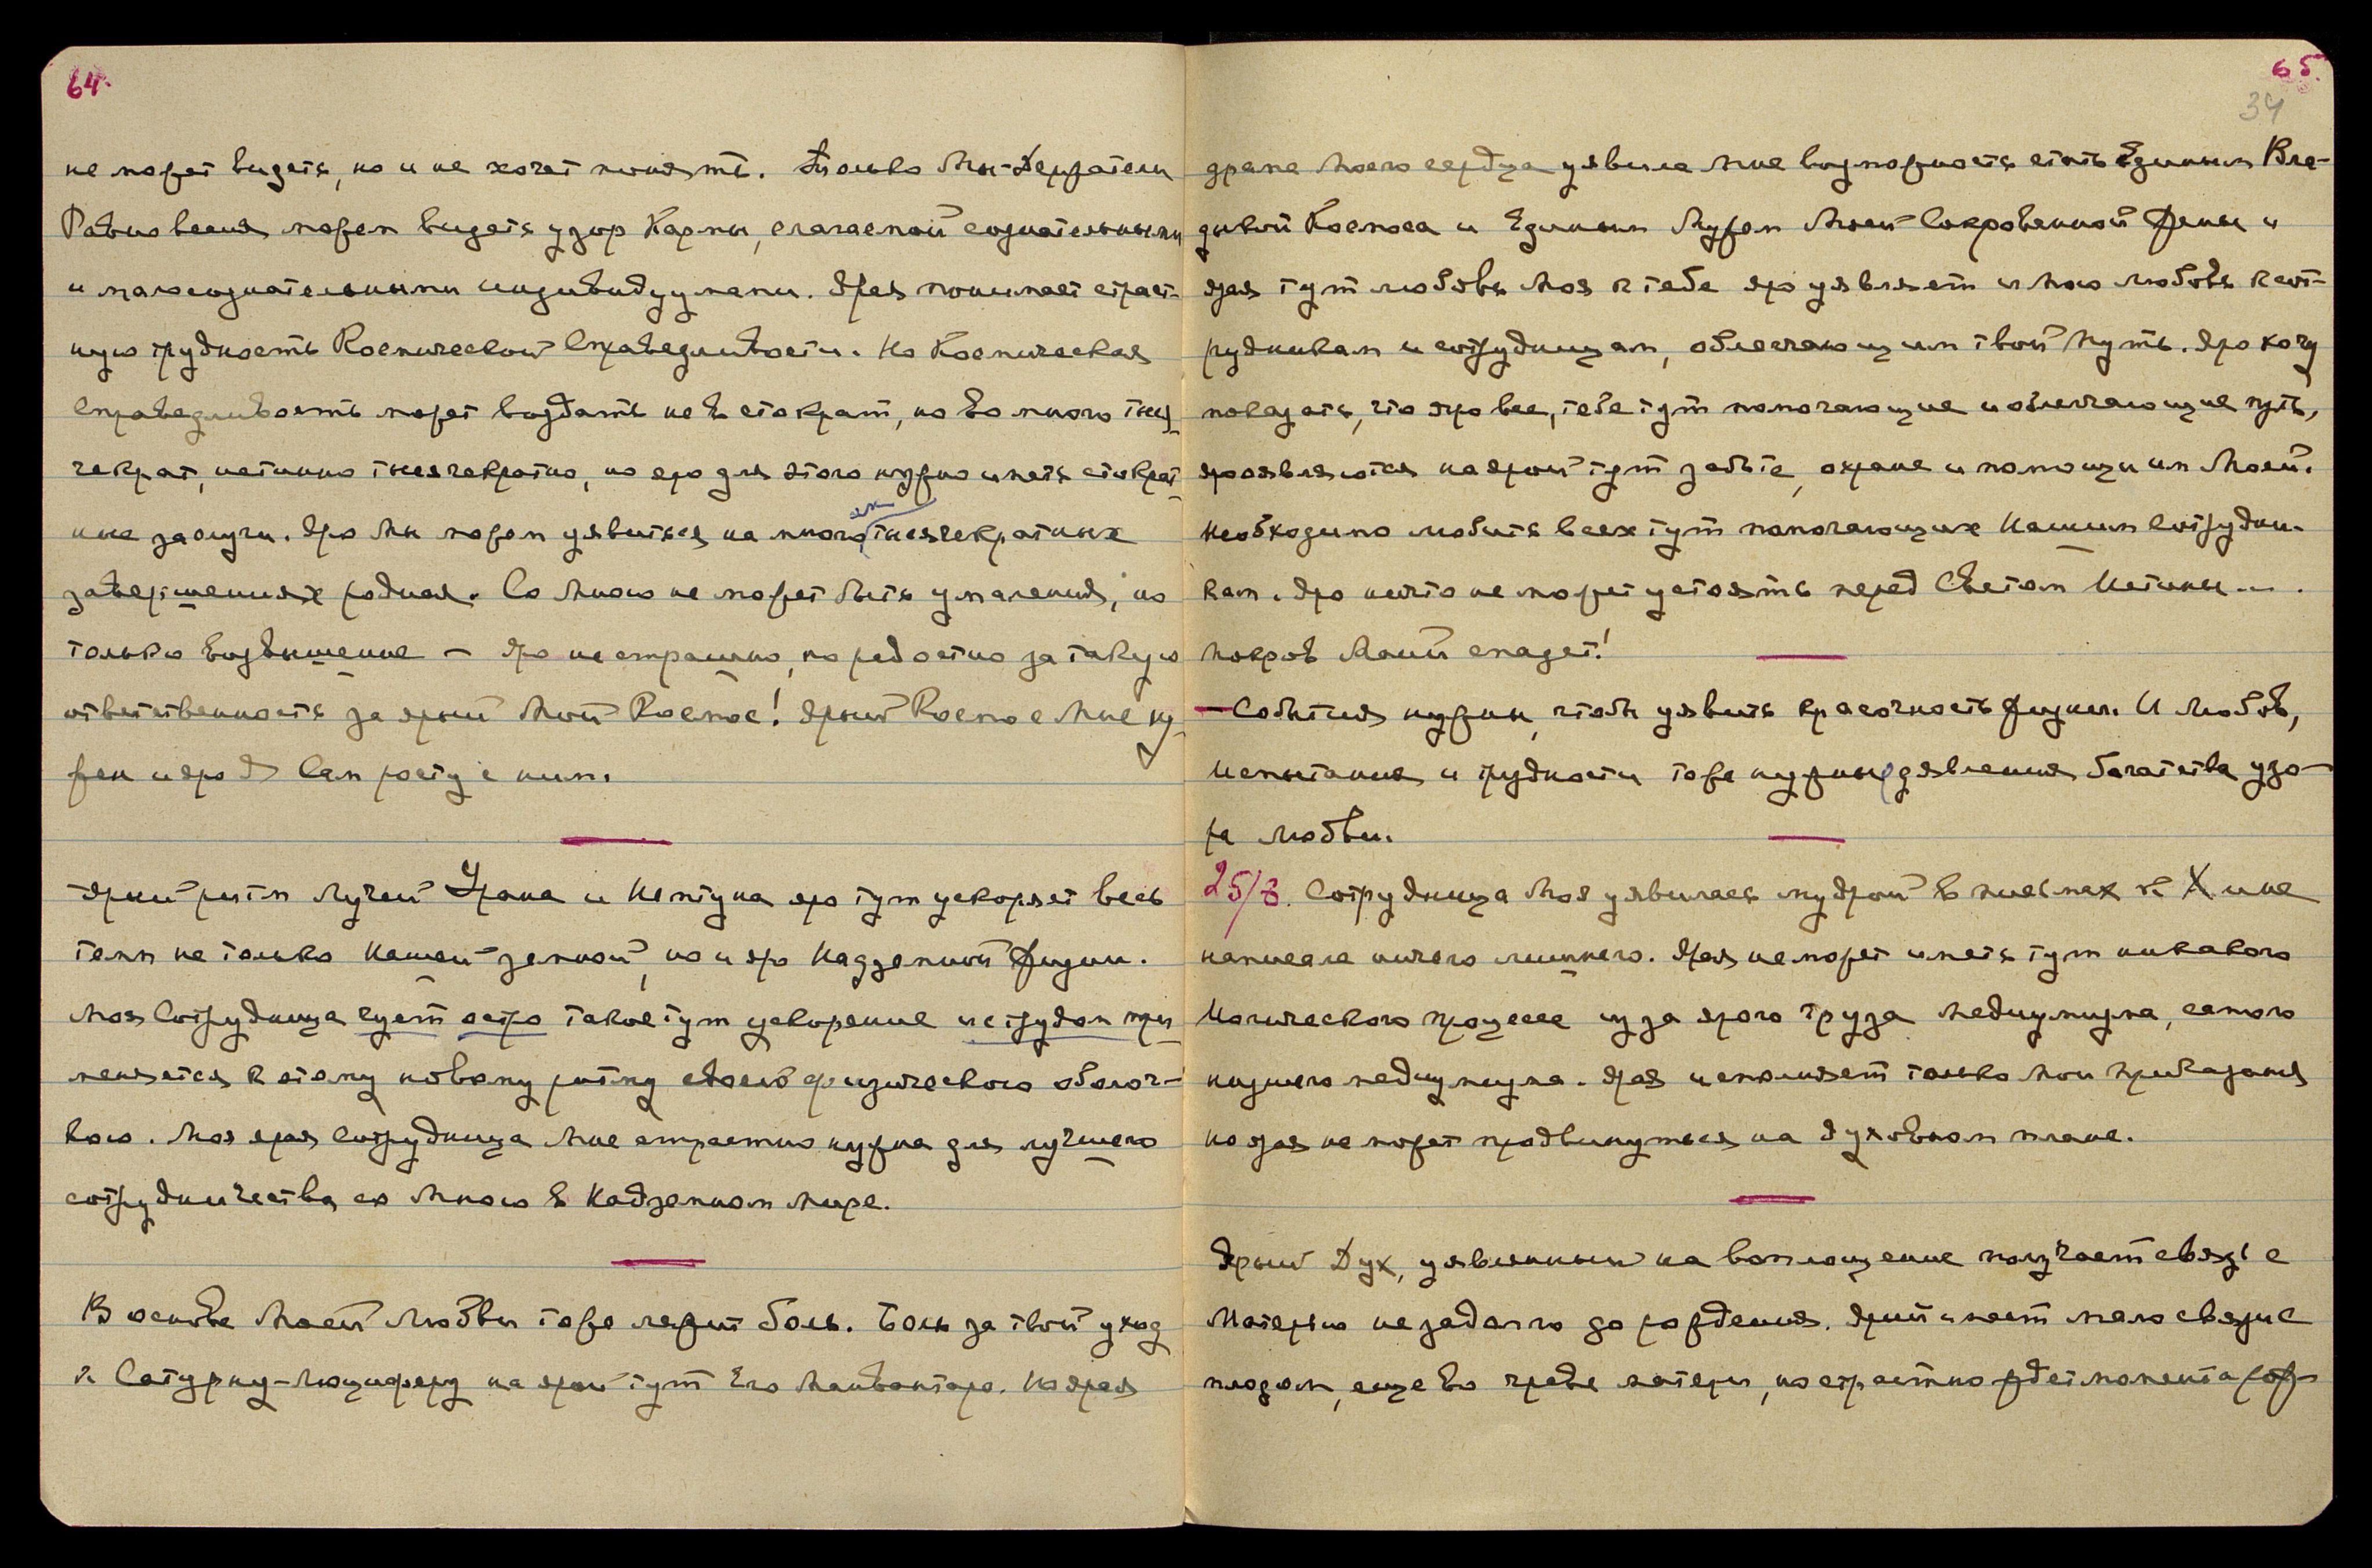 64.
не может видеть, но и не хочет понять. Только Мы-Держатели
Равновесия можем видеть узор Кармы, слагаемой сознательными
и малосознательными индивидуумами. Ярая понимает страст-
ную трудность Космической Справедливости. Но Космическая
Справедливость может воздать не в стократ, но во много тыся-
чекрат, истинно тысячекратно, но яро для этого нужно иметь стократ-
ные заслуги. Яро Мы можем уявиться на много тысячекратных
завершениях родная. Со Мною не может быть умаления, но
только возвышение – Яро не страшно, но радостно за такую
ответственность за ярый Мой Космос! Ярый Космос Мне ну-
жен и яро Я Сам расту с ним.
Ярый ритм лучей Урана и Нептуна яро тут ускоряет весь
темп не только Нашей земной, но и яро Надземной Жизни.
Моя Сотрудница чует остро такое тут ускорение и с трудом при-
меняется к этому новому ритму своею физическою оболоч-
кою. Моя ярая Сотрудница Мне страстно нужна для лучшего
сотрудничества со Мною в Надземном Мире.
В основе Моей Любви тоже лежит боль. Боль за твой уход
к Сатурну-Люциферу на ярой тут Его Манвантаре. Но ярая
65.
34
драма Моего сердца уявила Мне возможность стать Единым Вла-
дыкой Космоса и Единым Мужем Моей Сокровенной Жены и
ярая тут любовь Моя к тебе яро уявляет и Мою любовь к сот-
рудникам и сотрудницам, облегчающим твой Путь. Яро хочу
показать, что яро все, тебе тут помогающие и облегчающие путь,
яро являются на ярой тут заботе, охране и помощи им Моей.
Необходимо любить всех тут помогающих Нашим Сотрудни-
кам. Яро ничто не может устоять перед Светом Истины ...
Покров Майи спадет!
– События нужны, чтобы уявить красочность Жизни. И Любовь,
испытания и трудности тоже нужны для явления богатства узо-
ра Любви.
25/8. Сотрудница Моя уявилась мудрой в письмах к Х и не
написала ничего лишнего. Ярая не может иметь тут никакого
Йогического процесса из за ярого труда медиумизма, самого
низшего медиумизма. Ярая исполняет только Мои приказания
но ярая не может продвинуться на духовном плане.
Ярый Дух, уявленный на воплощение получает связь с
Матерью незадолго до рождения. Ярый имеет мало связи с
плодом, еще во чреве матери, но страстно ждет момента рож-